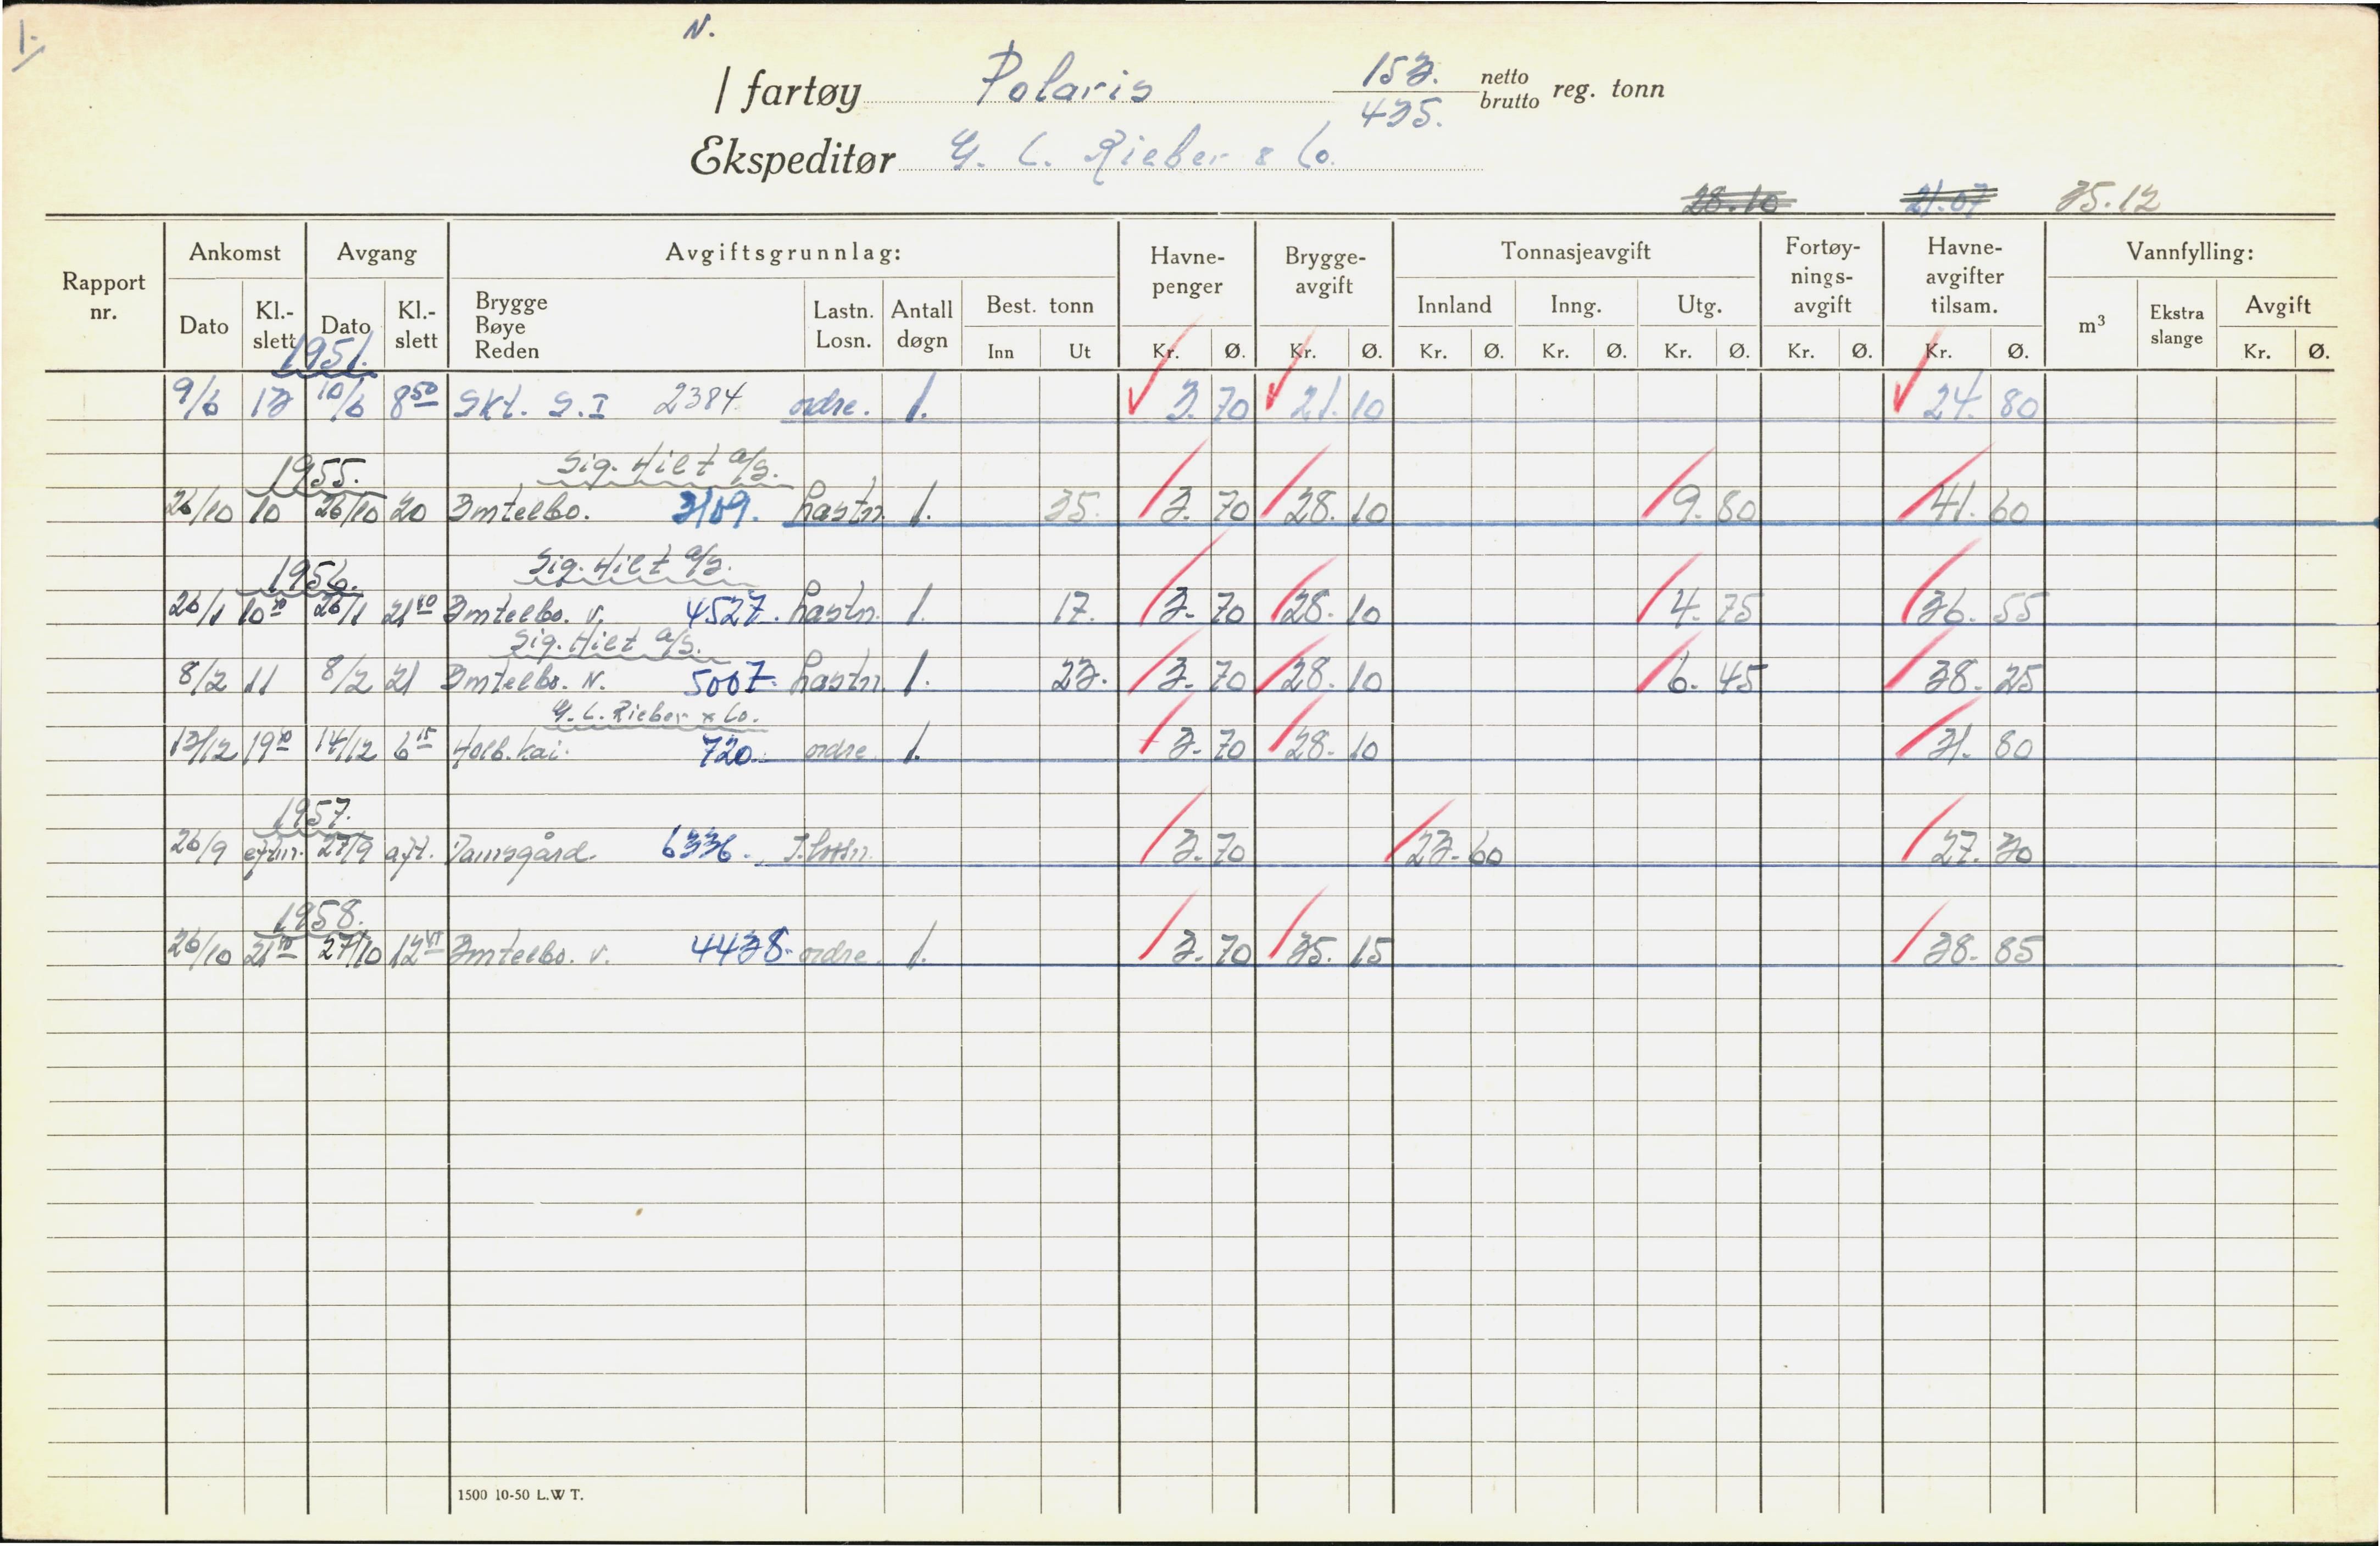 1.
N.
/ fartøy Polaris 153. netto
435. brutto reg. tonn
Ekspeditør G. C. Rieber & Co.
28.10 21.07 35.12
Rapport nr. Ankomst Avgang Avgiftsgrunnlag: Havne-penger Brygge-avgift Tonnasjeavgift Fortøy-nings-avgift Havne-avgifter tilsam. Vannfylling:
Dato Kl.-slett Dato Kl.-slett Brygge Bøye Reden Lastn. Losn. Antall døgn Best. tonn Innland Inng. Utg. m³ Ekstra slange Avgift
Inn Ut Kr. Ø. Kr. Ø. Kr. Ø. Kr. Ø. Kr. Ø. Kr. Ø. Kr. Ø. Kr. Ø.
1951.
9/6 13 10/6 8 50 Skt. S. I 2384 ordre. 1. 3. 70 21. 10 24. 80
1955. Sig. Hilt a/s.
26/10 10 26/10 20 3109. Lastn. 1. 35. 3. 70 28. 10 9. 80 41. 60
1956. Sig. Hilt a/s.
26/1 10 30 26/1 21 40 4527. Lastn. 1. 17. 3. 70 28. 10 4. 75 36. 55
Sig. Hilt a/s.
8/2 11 8/2 21 5007. Lastn. 1. 23. 3. 70 28. 10 6. 45 38. 25
G. C. Rieber & Co.
13/12 19 30 14/12 6 15 Holb. kai. 720. ordre. 1. 3. 70 28. 10 31. 80
1957.
26/9 eftm. 27/9 aft. Damsgård. 6336. I. lossn. 3. 70 23. 60 27. 30
1958.
26/10 21 30 27/10 12 45 4438. ordre. 1. 3. 70 35. 15 38. 85
1500 10-50 L.W T.